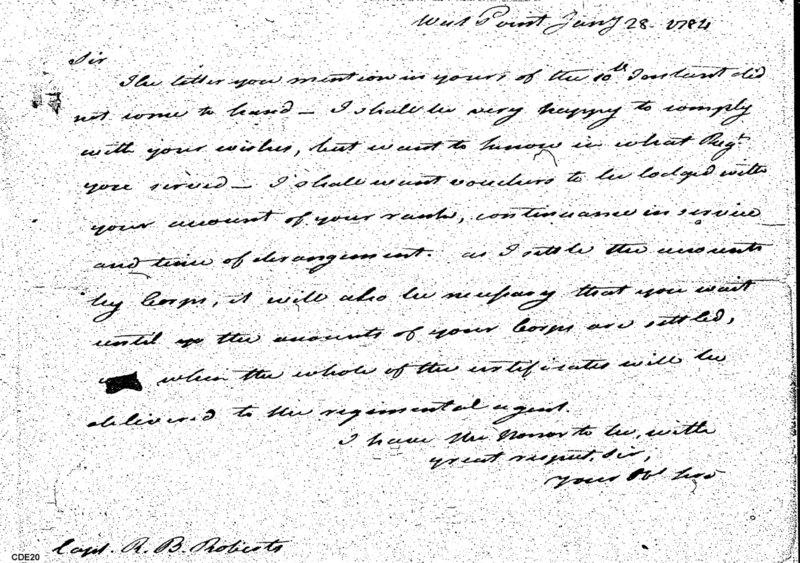 West Point Jany 28. 1784
Sir
The letter you mention in yours of the 10th Instant did
not come to hand – I shall be very happy to comply
with your wishes, but want to know in what Regt
you served – I shall want vouchers to be lodged with
your account of your rank, continuance in service
and time of derangement. as I settle the accounts
by Corps, it will also be necessary that you wait
until the accounts of your Corps are settled,
when the whole of the certificates will be
delivered to the regimental agent.
I have the honor to be, with
great respect, Sir,
your Ob
Capt. R. B. Roberts
CDE20